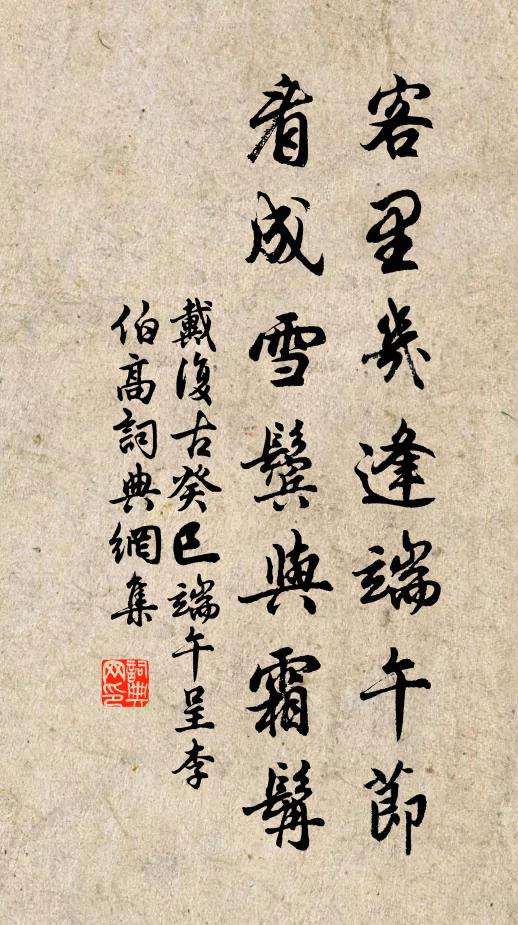 客里幾逢端午節
看成雪鬢與霜髯
戴復古癸巳端午呈李
伯高詞典網集
詞典
网印